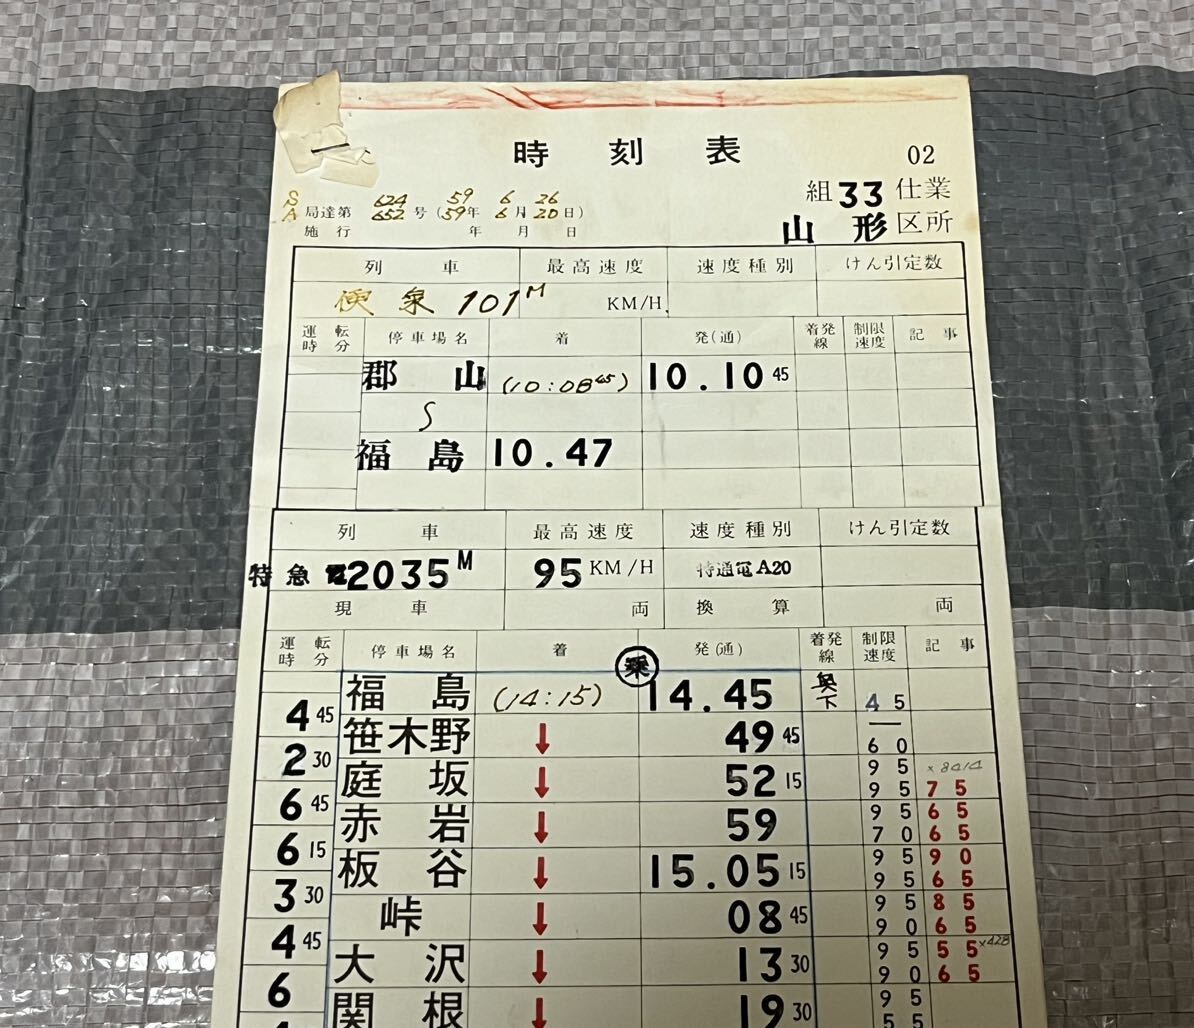 時刻表
02
組 33 仕業
山形 区所
S 624 59 6 26
A 局達第 652 号 (59年 6月20日)
施行 年 月 日
列車 最高速度 速度種別 けん引定数
101M KM/H
運転時分 停車場名 着 発(通) 着発線 制限速度 記事
郡山 (10:08 45) 10.10 45
福島 10.47
列車 最高速度 速度種別 けん引定数
特急 電2035M 95 KM/H 特通電A20
現車 両 換算 両
運転時分 停車場名 着 発(通) 着発線 制限速度 記事
乗
福島 (14:15) 14.45 下 45
4 45
笹木野 ↓ 49 45 60
2 30 95 ×8414
庭坂 ↓ 52 15 95 75
6 45 95 65
赤岩 ↓ 59 70 65
6 15 95 90
板谷 ↓ 15.05 15 95 65
3 30 95 85
峠 ↓ 08 45 90 65
4 45 95 55 ×428
大沢 ↓ 13 30 90 65
6 95
関根 ↓ 19 30 55